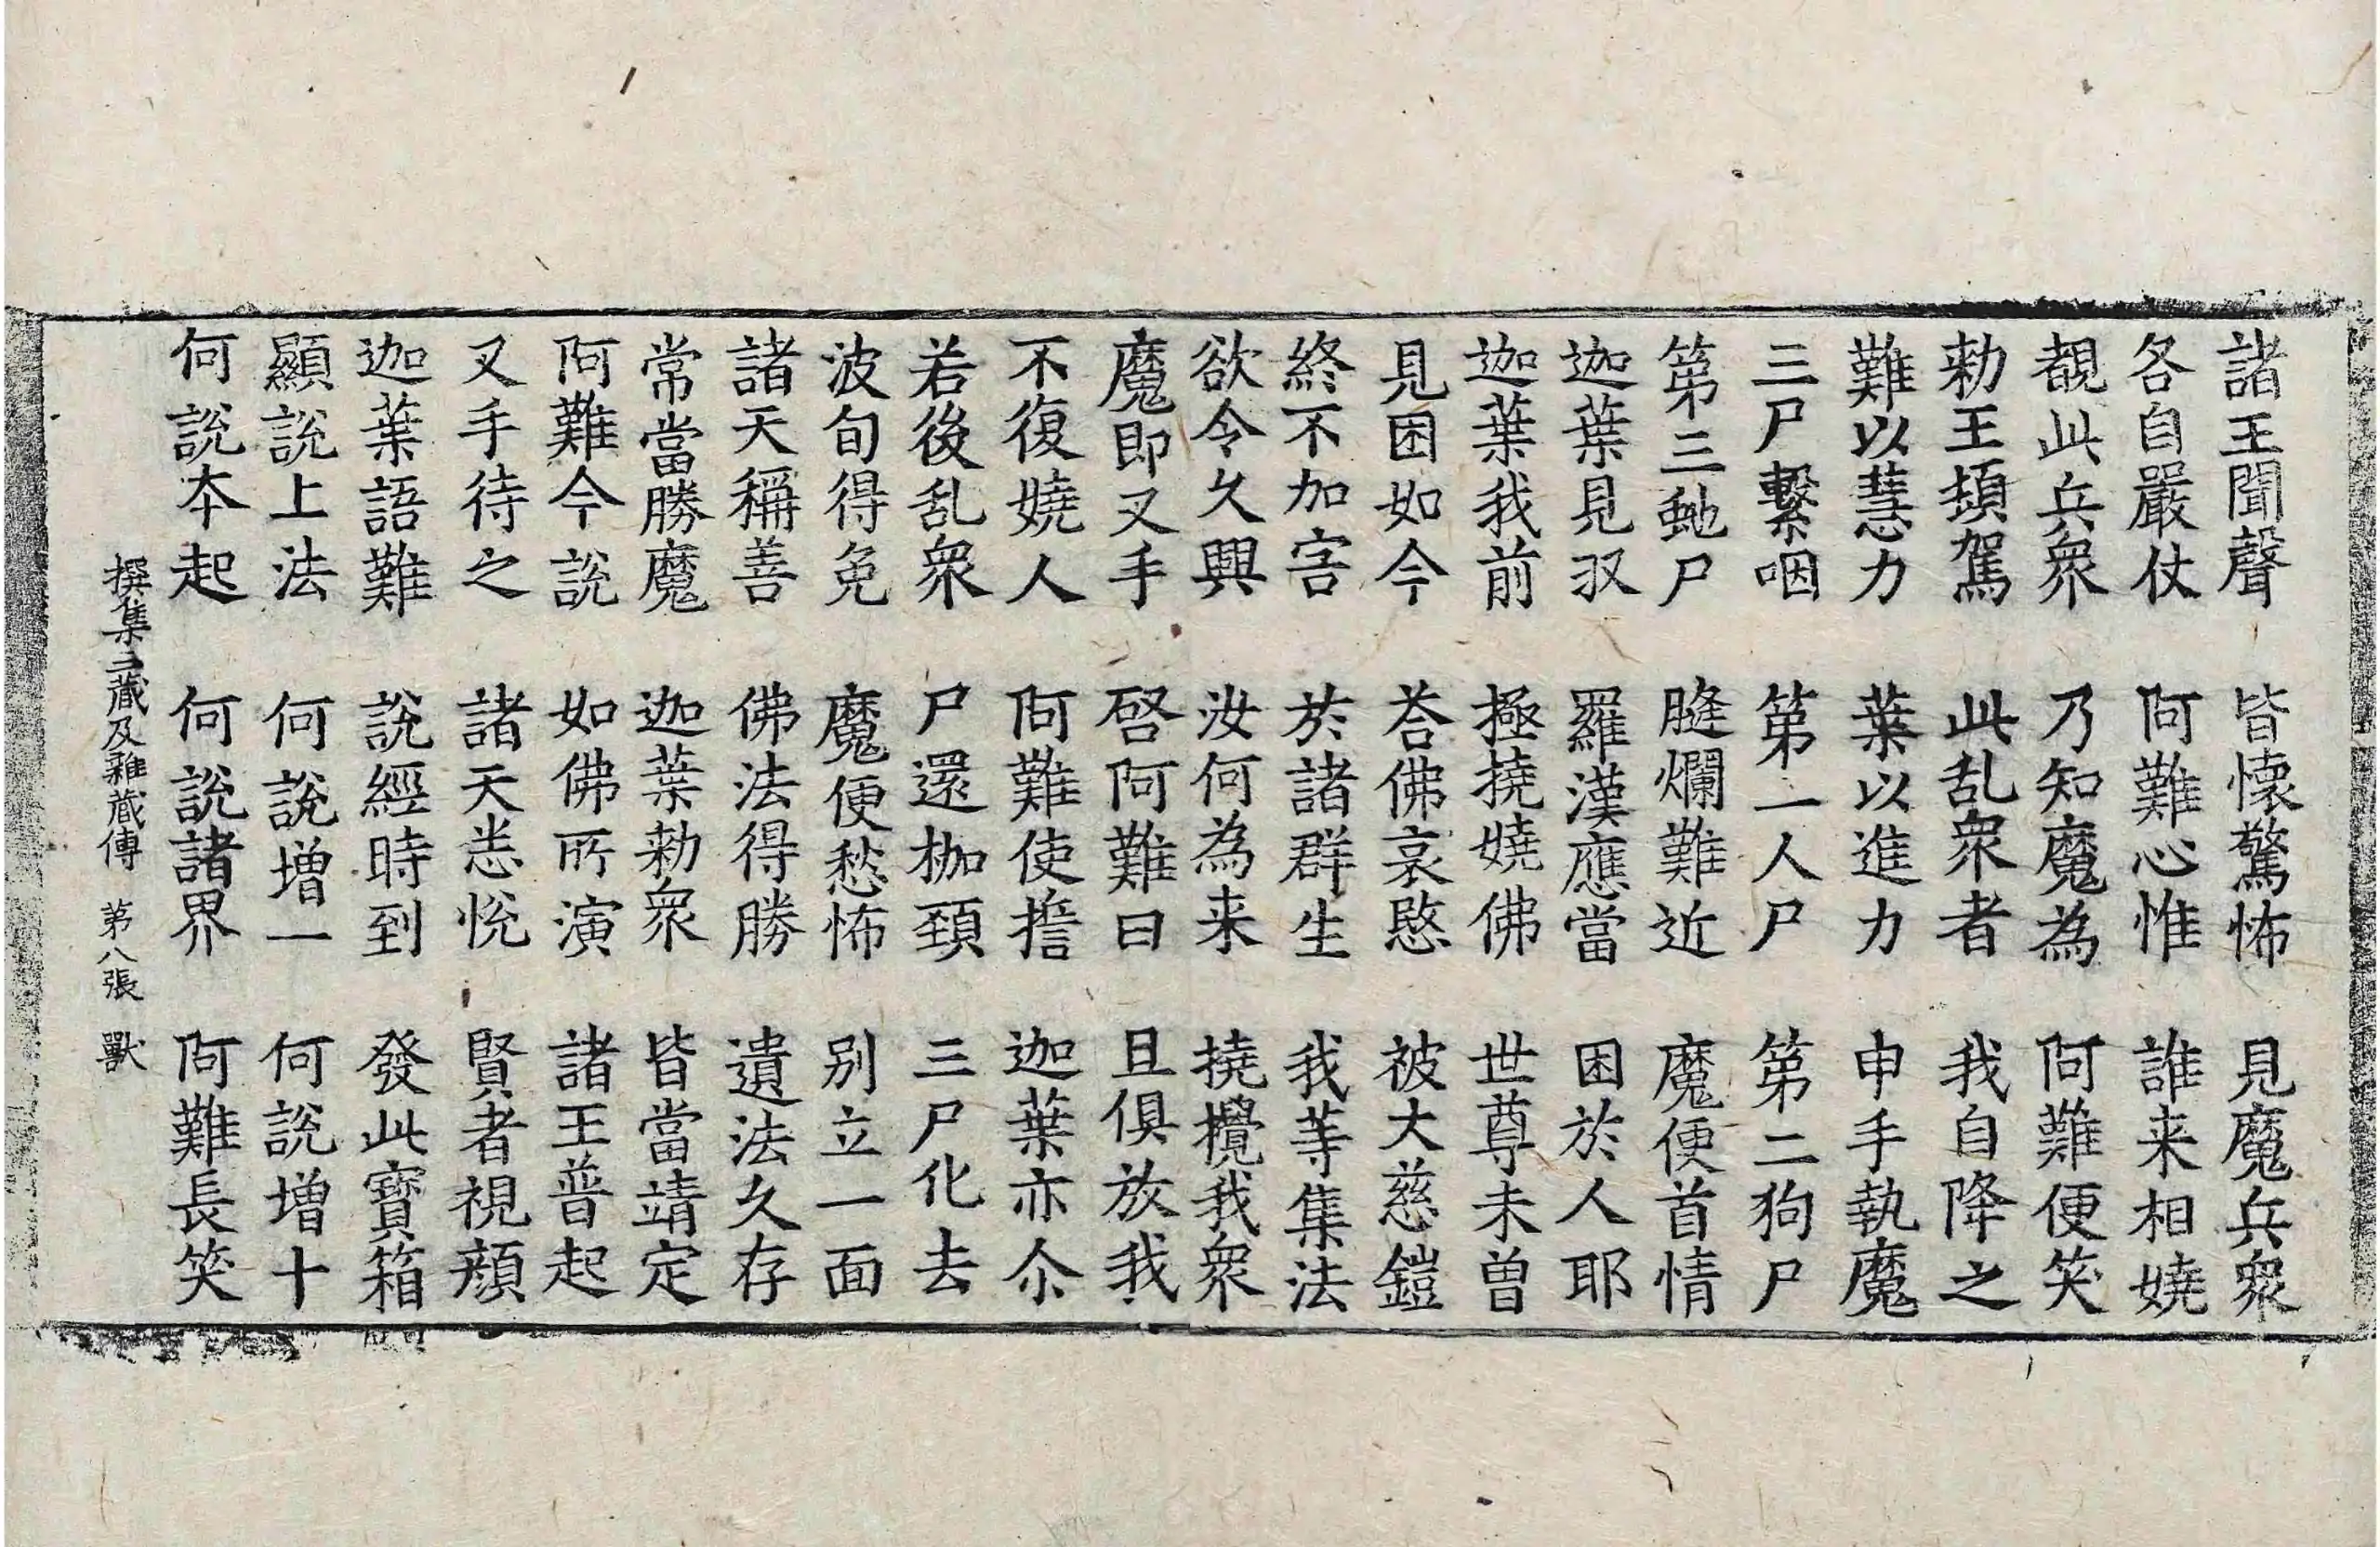 諸王聞聲　皆懷驚怖　見魔兵衆
各自嚴仗　阿難心惟　誰来相嬈
覩此兵衆　乃知魔為　阿難便笑
勑王頞駕　此乱衆者　我自降之
難以慧力　葉以進力　申手執魔
三尸繫咽　第一人尸　第二狗尸
第三虵尸　膖爛難近　魔便首情
迦葉見収　羅漢應當　困於人耶
迦葉我前　極撓嬈佛　世尊未曽
見困如今　荅佛哀愍　被大慈鎧
終不加害　於諸群生　我等集法
欲令久興　汝何為来　撓攪我衆
魔即叉手　啓阿難曰　且俱放我
不復嬈人　阿難使擔　迦葉亦尒
若後乱衆　尸還枷頚　三尸化去
波旬得免　魔便愁怖　别立一面
諸天稱善　佛法得勝　遺法久存
常當勝魔　迦葉勑衆　皆當靖定
阿難今說　如佛所演　諸王普起
叉手待之　諸天悉悅　賢者視顔
迦葉語難　說經時到　發此寳箱
顯說上法　何說增一　何說增十
何說本起　何說諸界　阿難長笑
撰集三藏及雜藏傳　第八張　獸